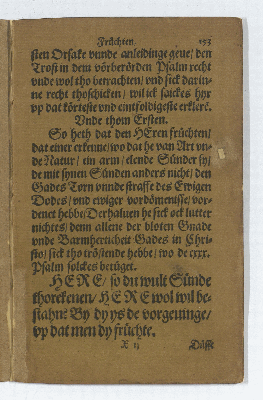 Früchten. 153
sten Orsake vnnde anleidinge geue/ den
Trost in dem vörberörden Psalm recht
vnde wol tho betrachten/ vnd sick darin-
ne recht thoschicken/ wil ick solckes hyr
vp dat körteste vnd eintfoldigeste erklere.
Vnde thom Ersten.
So heth dat den HEren früchten/
dat einer erkenne/ wo dat he van Art vn-
de Natur/ ein arm/ elende Sünder sy/
de mit synen Sünden anders nicht/ den
Gades Torn vnnde straffe des Ewigen
Dodes/ vnd ewiger vordömenisse/ vor-
denet hebbe/ Derhaluen he sick ock lutter
nichtes/ denn allene der bloten Gnade
vnde Barmherticheit Gades in Chri-
sto/ sick tho tröstende hebbe/ wo de xxx.
Psalm solckes betüget.
HERE/ so du wult Sünde
thorekenen/ HERE wol wil be-
stahn? By dy ys de vorgeuinge/
vp dat men dy früchte.
X ij Düsse